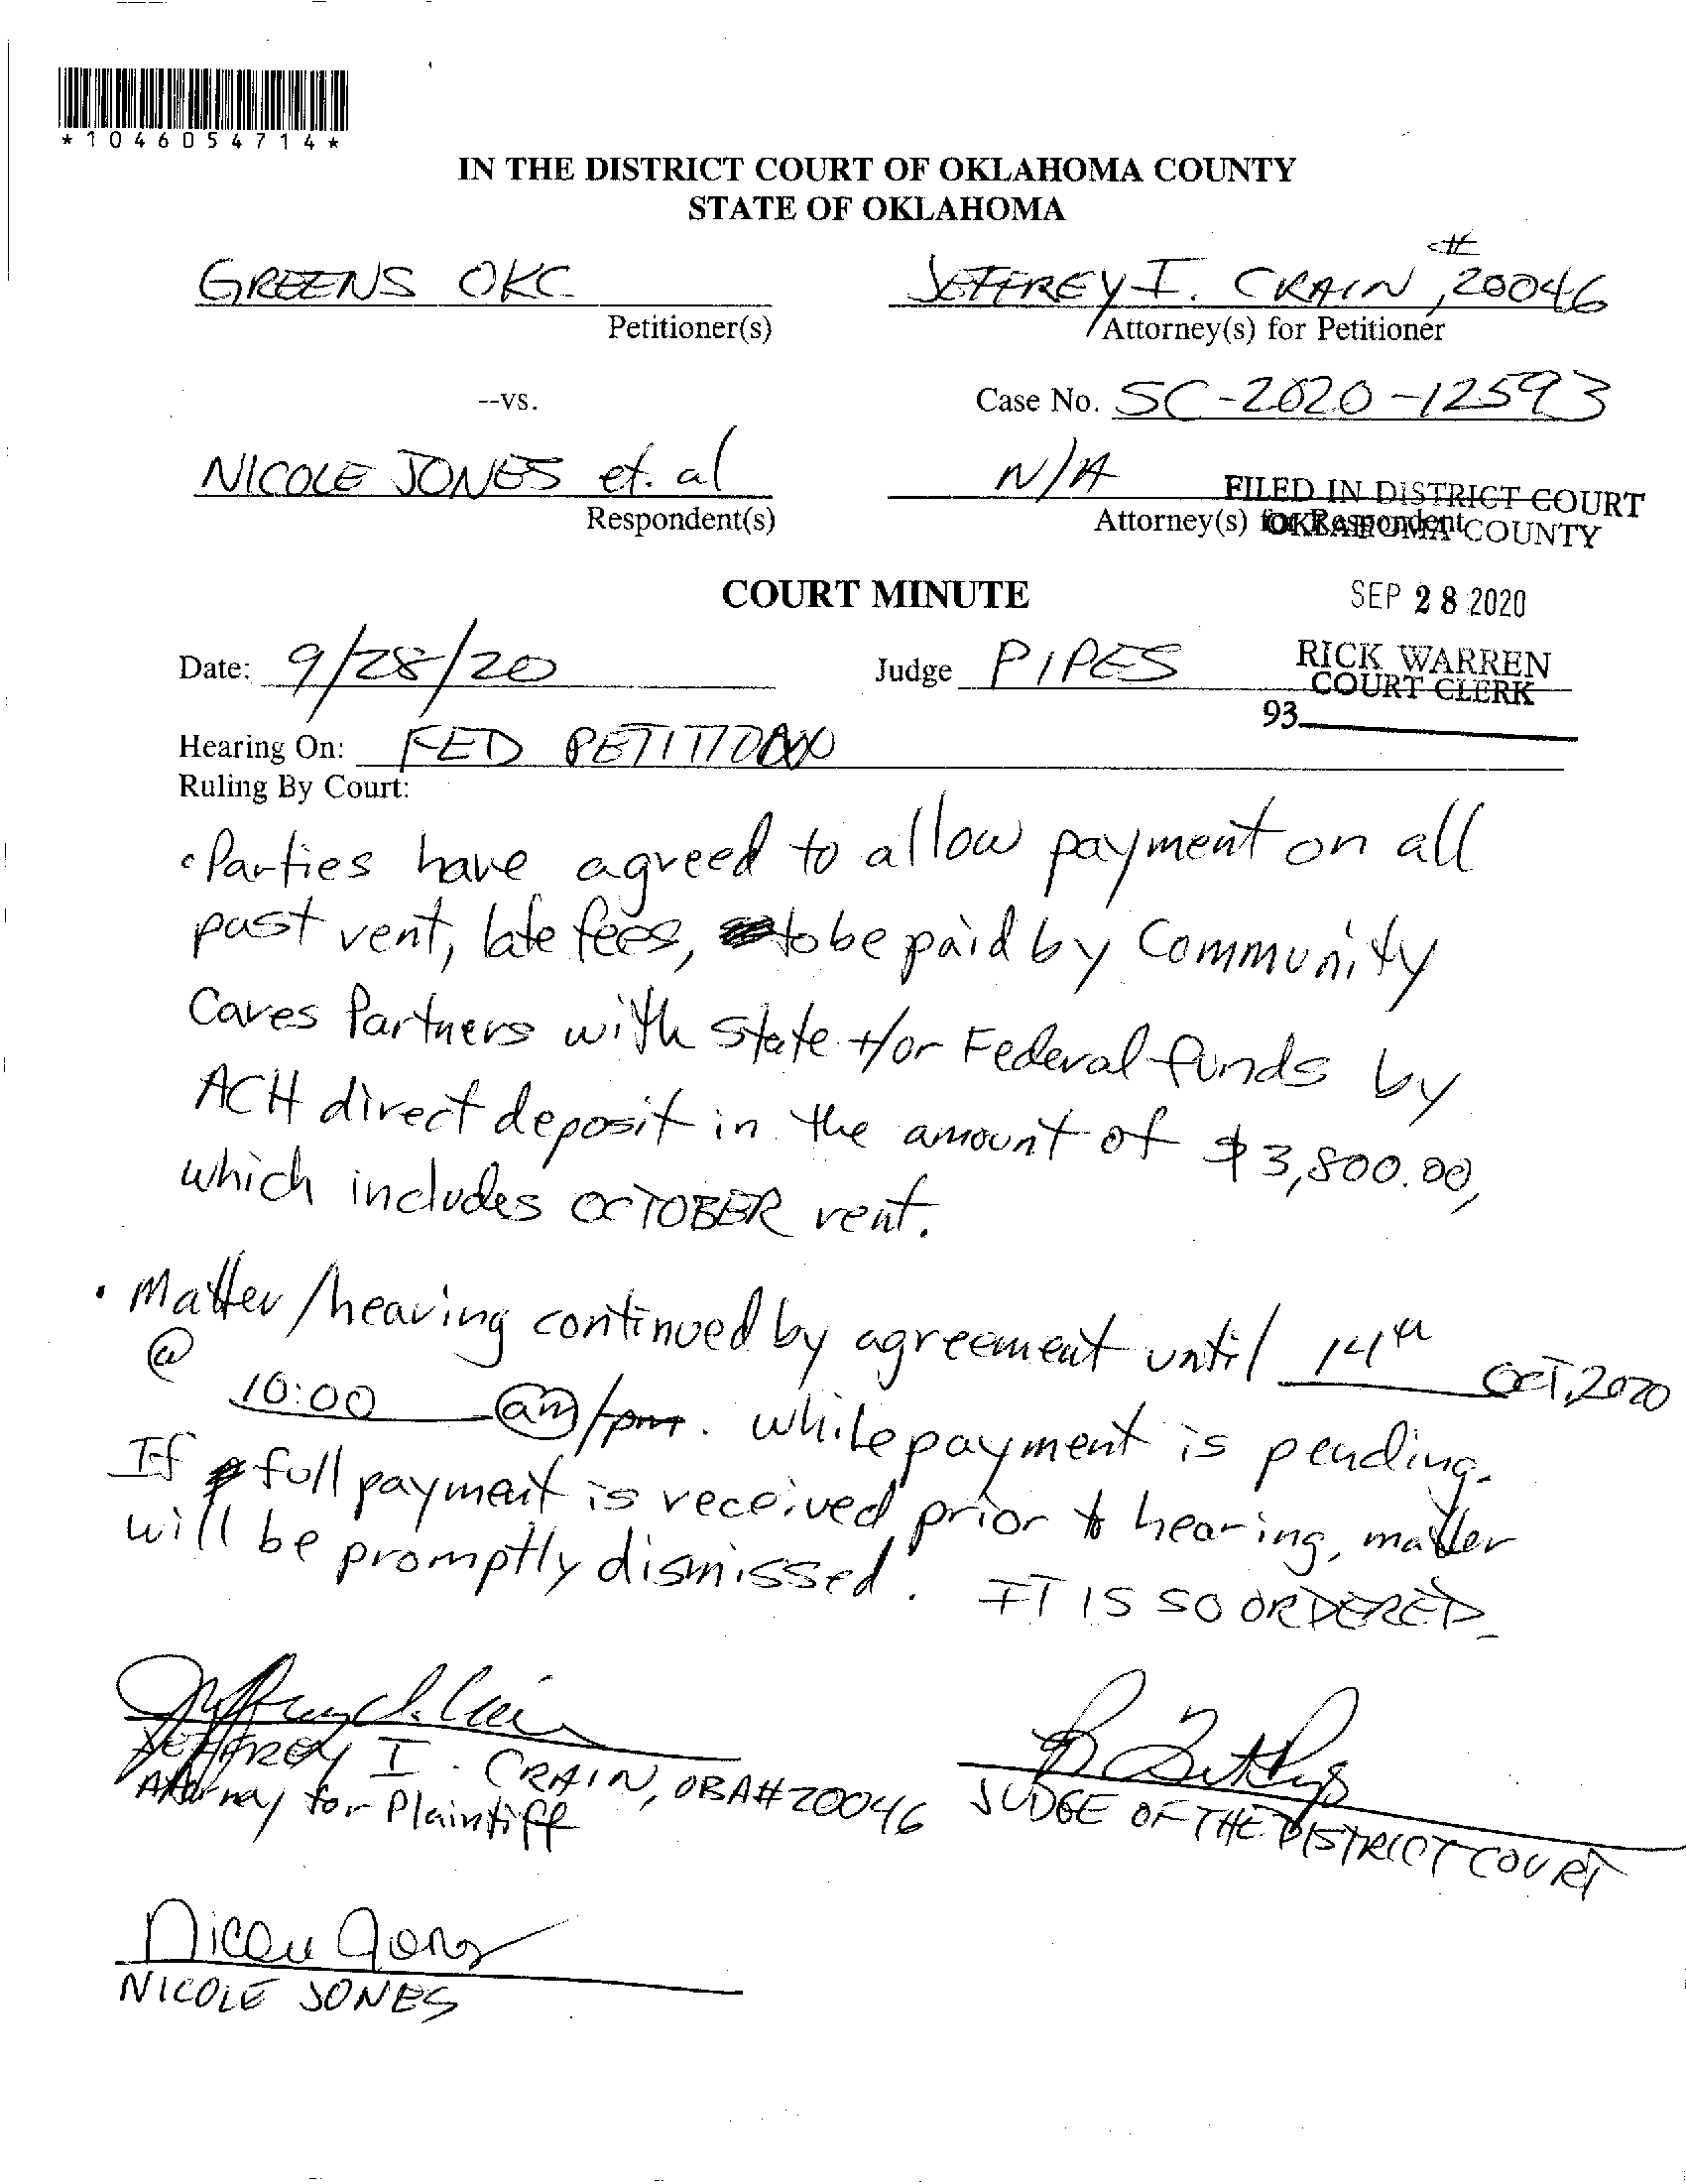 *1046054714*
IN THE DISTRICT COURT OF OKLAHOMA COUNTY
STATE OF OKLAHOMA
GREENS OKC JEFFREY I. CRAIN, #20046
Petitioner(s) Attorney(s) for Petitioner
--vs. Case No. SC-2020-12593
NICOLE JONES et. al N/A
Respondent(s) Attorney(s) for Respondent
FILED IN DISTRICT COURT
OKLAHOMA COUNTY
COURT MINUTE SEP 28 2020
Date: 9/28/20 Judge PIPES RICK WARREN
COURT CLERK
93
Hearing On: FED PETITION
Ruling By Court:
• Parties have agreed to allow payment on all
past rent, late fees, to be paid by Community
Cares Partners with State +/or Federal funds by
ACH direct deposit in the amount of $3,800.00,
which includes OCTOBER rent.
• Matter/hearing continued by agreement until 14th OCT, 2020
@ 10:00 am/pm. while payment is pending.
If full payment is received prior to hearing, matter
will be promptly dismissed. IT IS SO ORDERED.
JEFFREY I. CRAIN, OBA#20046
Attorney for Plaintiff
JUDGE OF THE DISTRICT COURT
Nicole Jones
NICOLE JONES